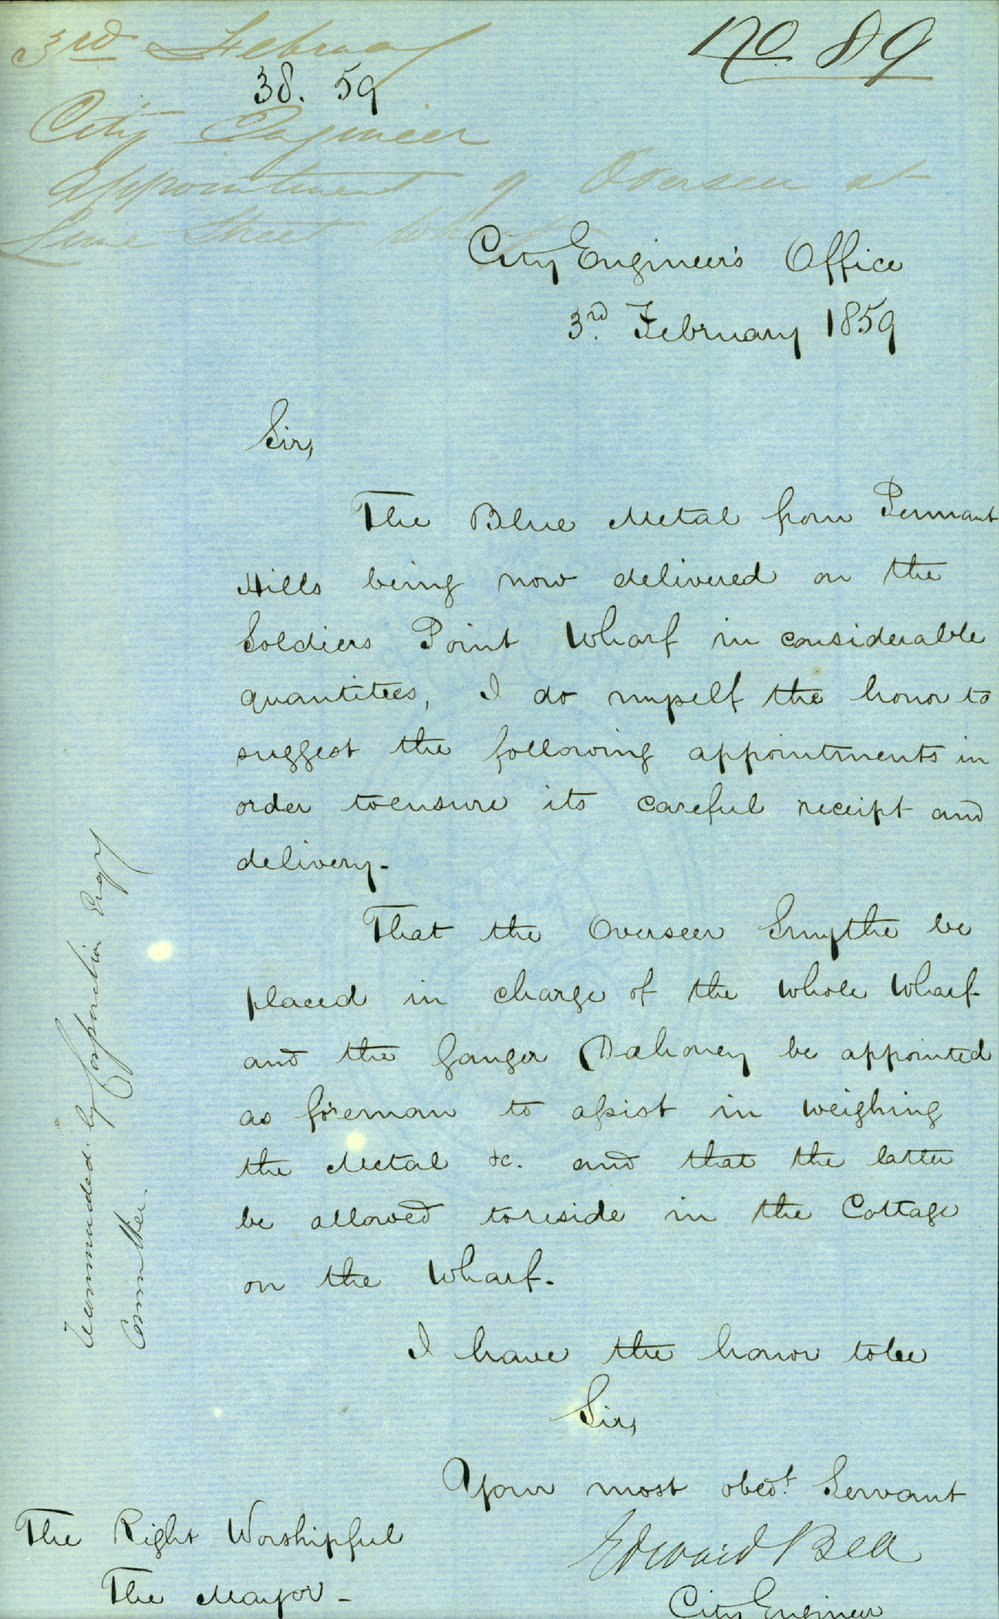 3rd February
No 89
38. 59
City Engineer
Appointment of Overseer at
Lime Street Wharf
City Engineer's Office
3rd. February 1859
Sir,
The Blue Metal from Pennant
Hills being now delivered on the
Soldiers Point Wharf in considerable
quantities, I do myself the honor to
suggest the following appointments in
order to ensure its careful receipt and
delivery-
That the Overseer Smythe be
placed in charge of the whole Wharf
and the Ganger Dahoney be appointed
as foreman to assist in weighing
the Metal &c. and that the latter
be allowed to reside in the Cottage
on the Wharf.
I have the honor to be
Sir,
Your most obedt. Servant
Edward Bell
City Engineer
The Right Worshipful
The Mayor-
Recommended by Corporation
Committee.